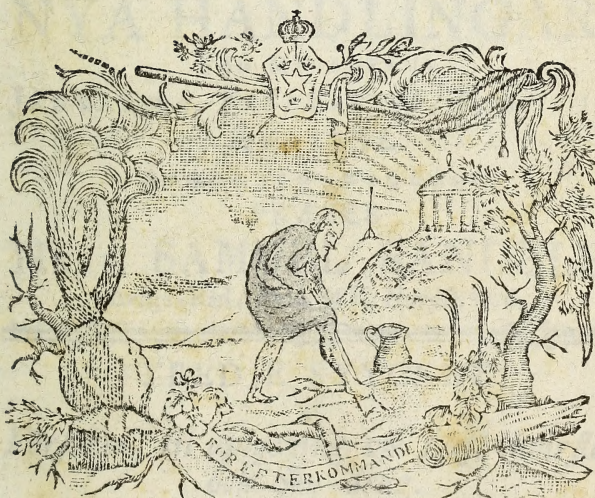 FÖR EFTERKOMMANDE